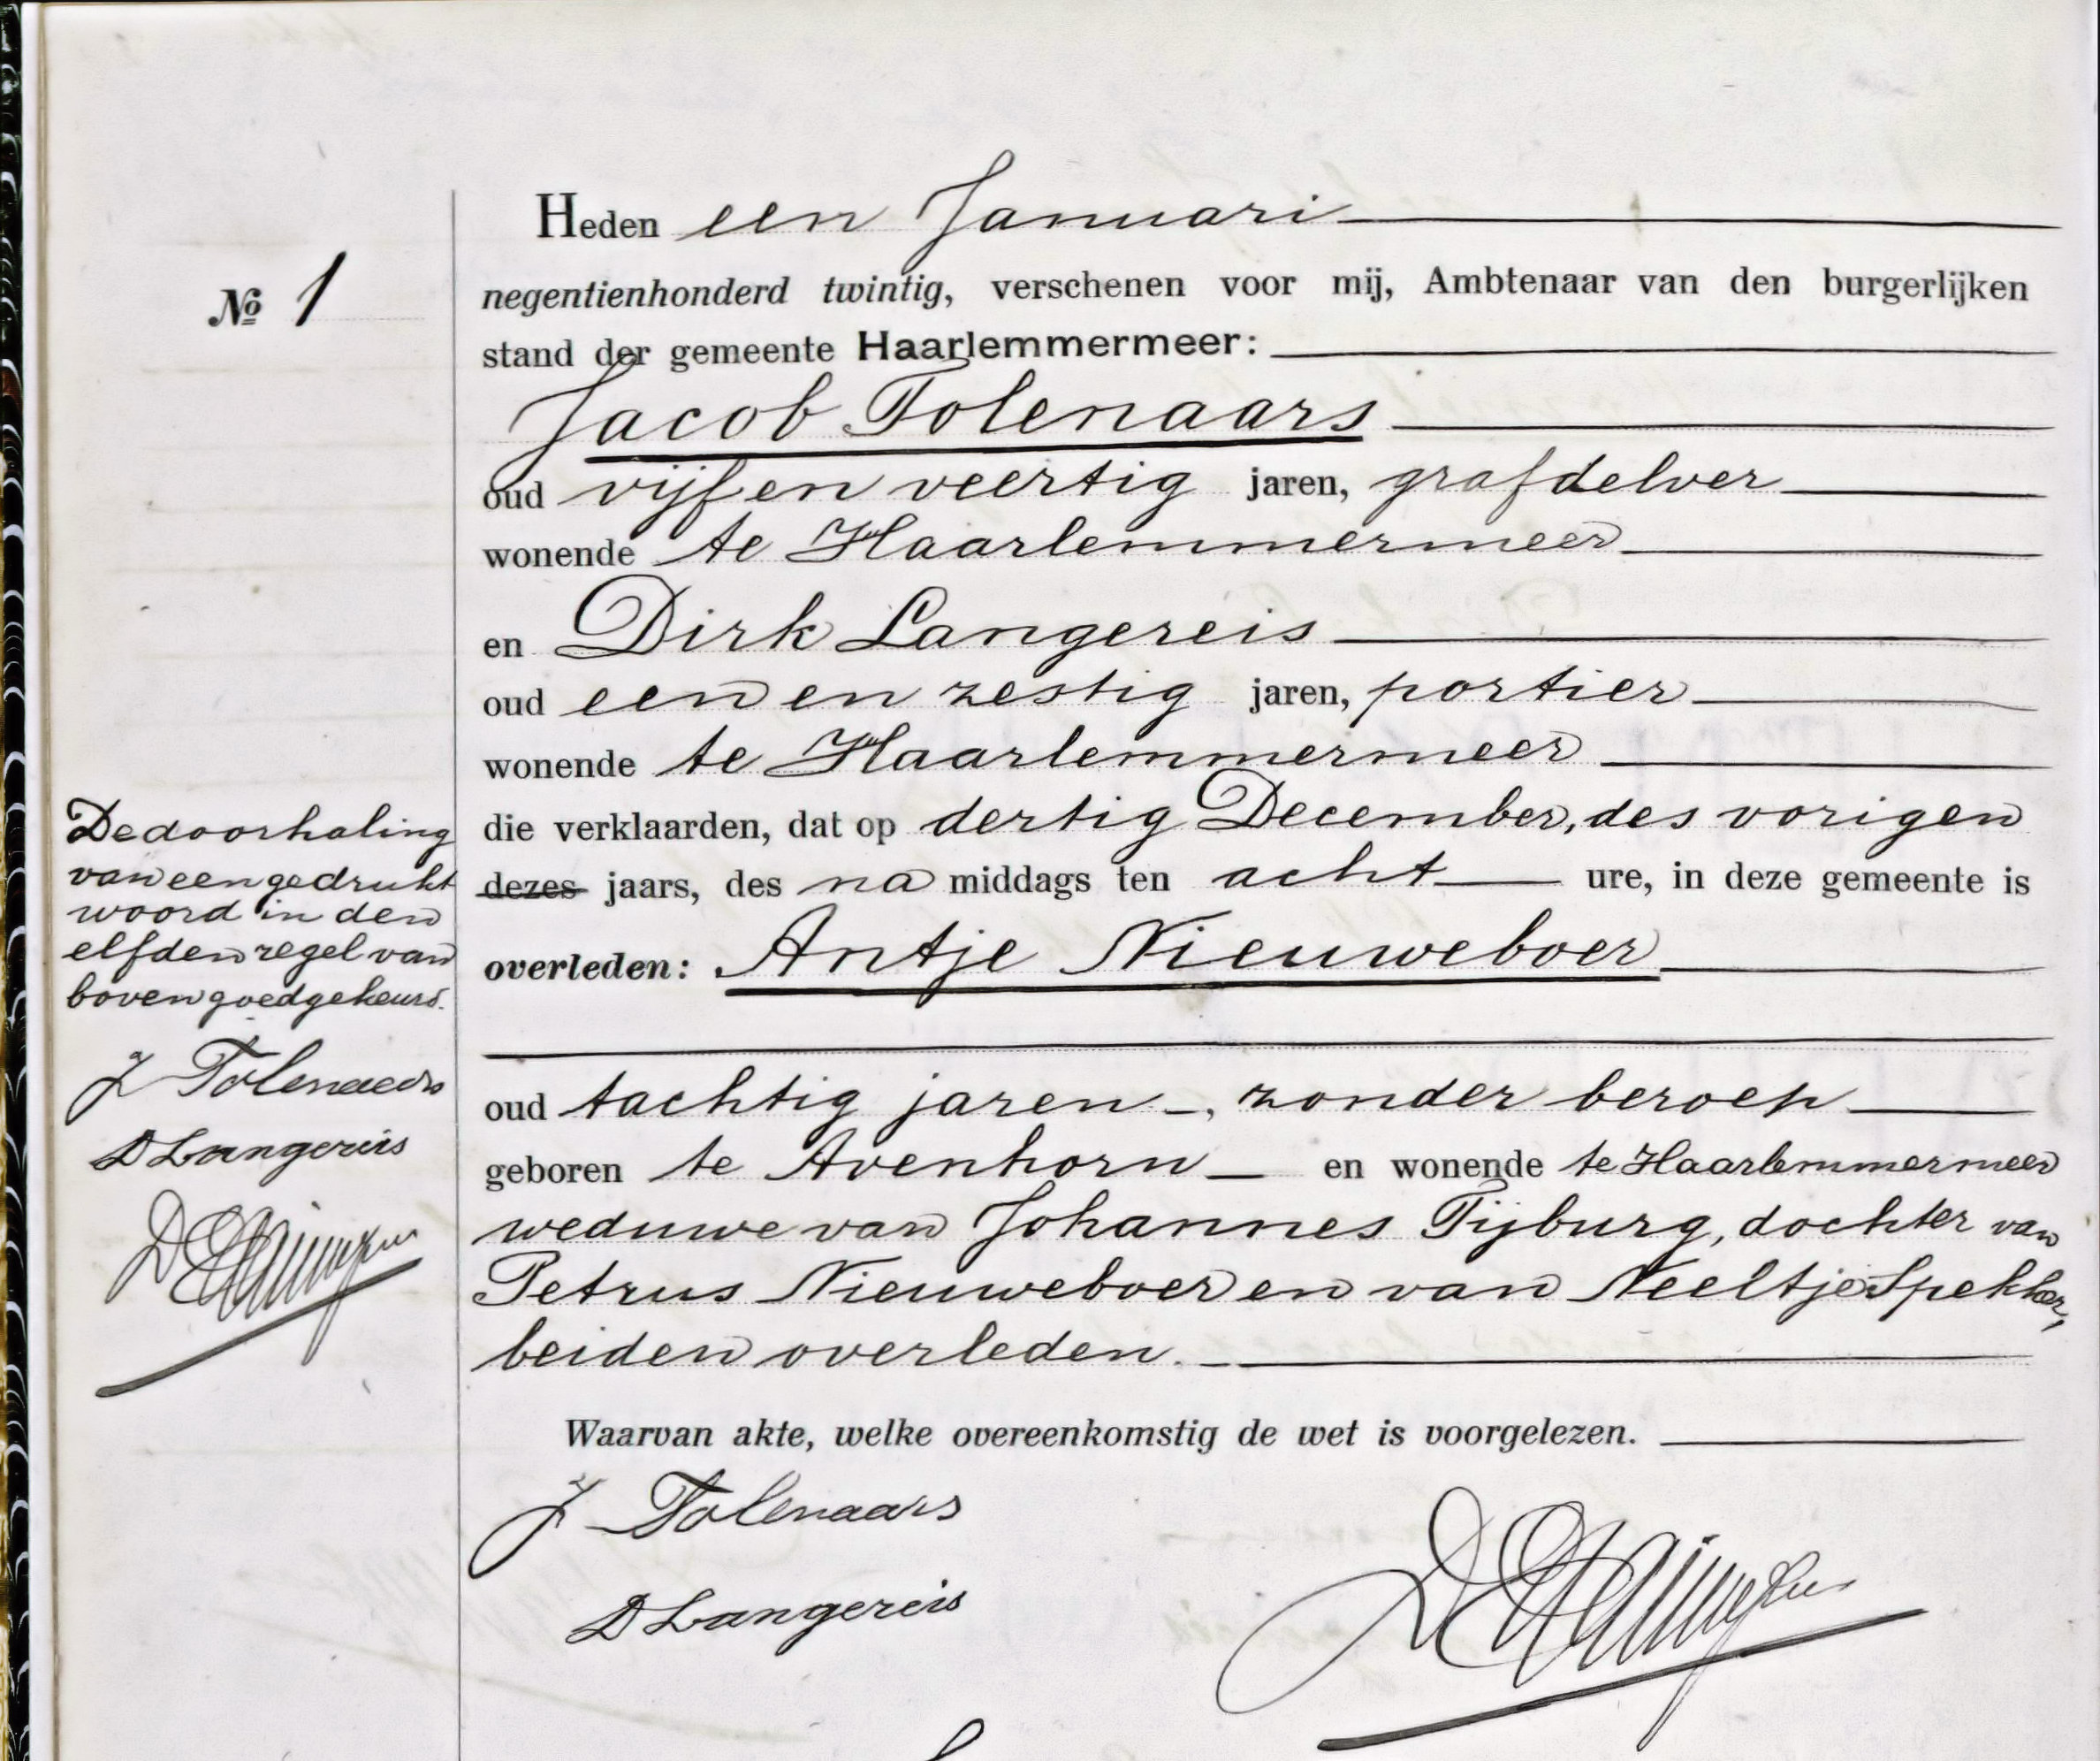 Heden een Januari
No 1
negentienhonderd twintig, verschenen voor mij, Ambtenaar van den burgerlijken
stand der gemeente Haarlemmermeer:
Jacob Tolenaars
oud vijf en veertig jaren, grafdelver
wonende te Haarlemmermeer
en Dirk Langereis
oud een en zestig jaren, portier
wonende te Haarlemmermeer
die verklaarden, dat op dertig December, des vorigen
dezes jaars, des na middags ten acht ure, in deze gemeente is
overleden: Antje Nieuweboer
oud tachtig jaren, zonder beroep
geboren te Avenhorn en wonende te Haarlemmermeer
weduwe van Johannes Tijburg, dochter van
Petrus Nieuweboer en van Neeltje Spekker,
beiden overleden.
Waarvan akte, welke overeenkomstig de wet is voorgelezen.
J Tolenaars
D Langereis
De doorhaling
van een gedrukt
woord in den
elfden regel van
boven goedgekeurd.
J Tolenaars
D Langereis